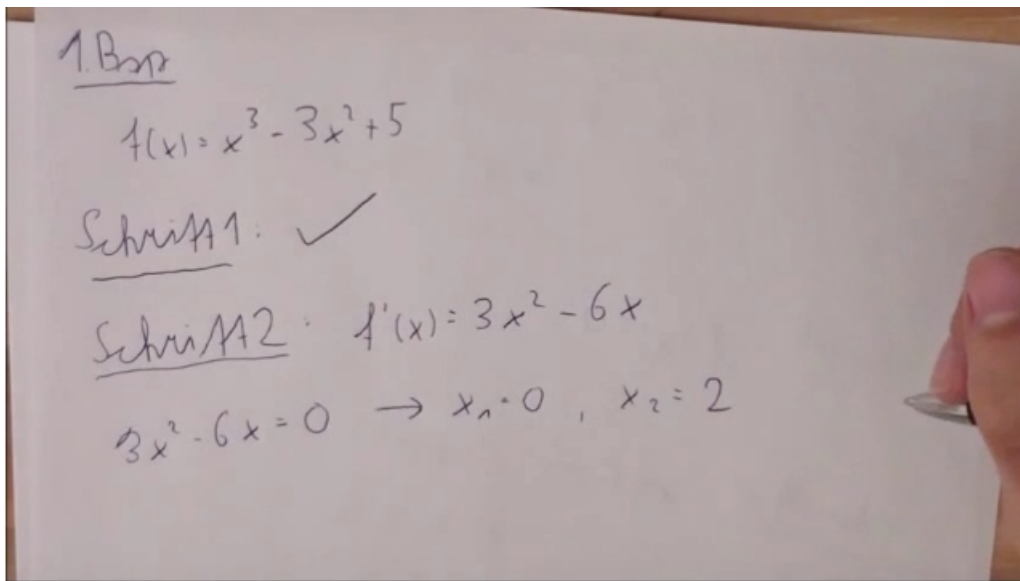 1. Bsp
f(x) = x³ - 3x² + 5
Schritt 1: ✓
Schritt 2: f'(x) = 3x² - 6x
3x² - 6x = 0 → x₁ = 0, x₂ = 2